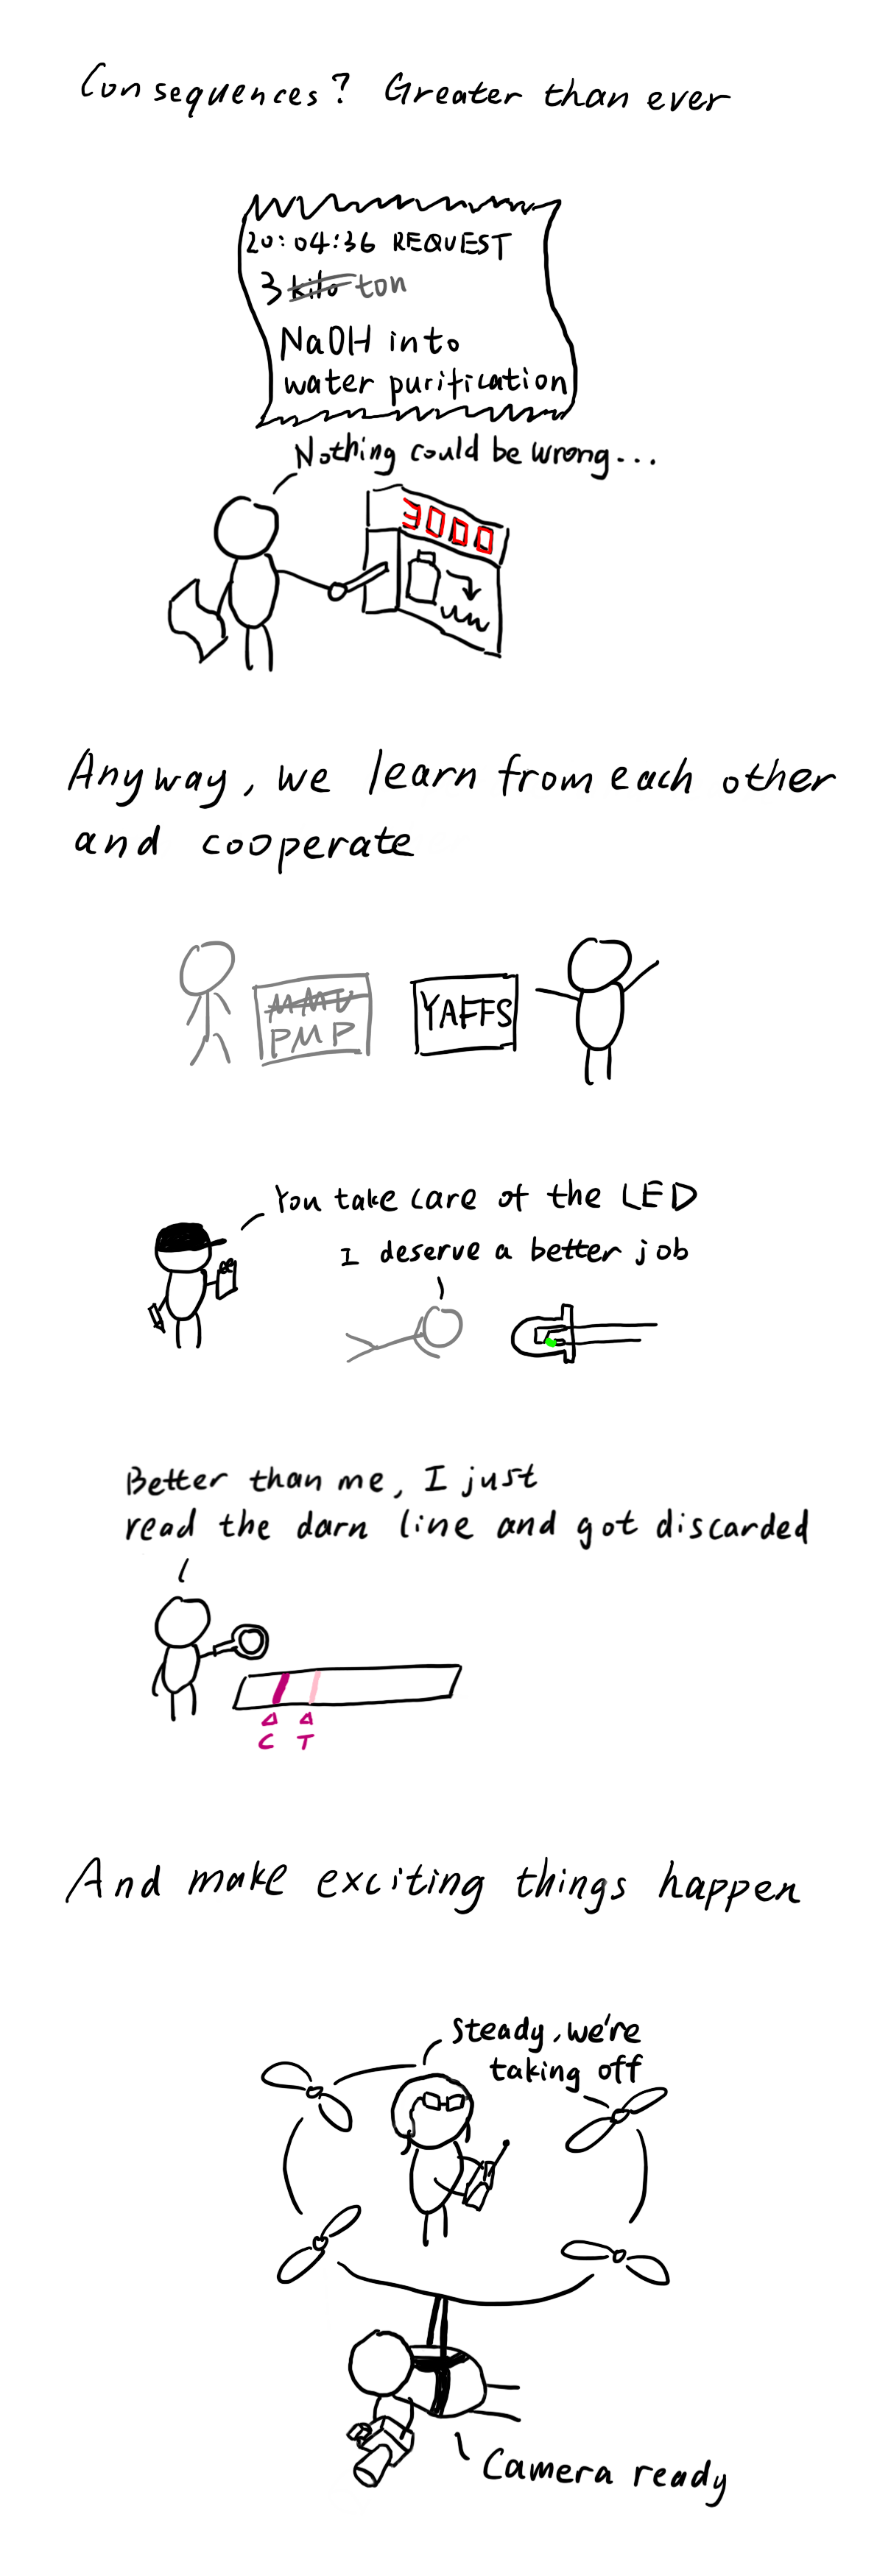 Consequences? Greater than ever
20:04:36 REQUEST
3 kilo ton
NaOH into
water purification
Nothing could be wrong...
3000
Anyway, we learn from each other
and cooperate
MMU
PMP
YAFFS
You take care of the LED
I deserve a better job
Better than me, I just
read the darn line and got discarded
C T
And make exciting things happen
Steady, we're
taking off
Camera ready